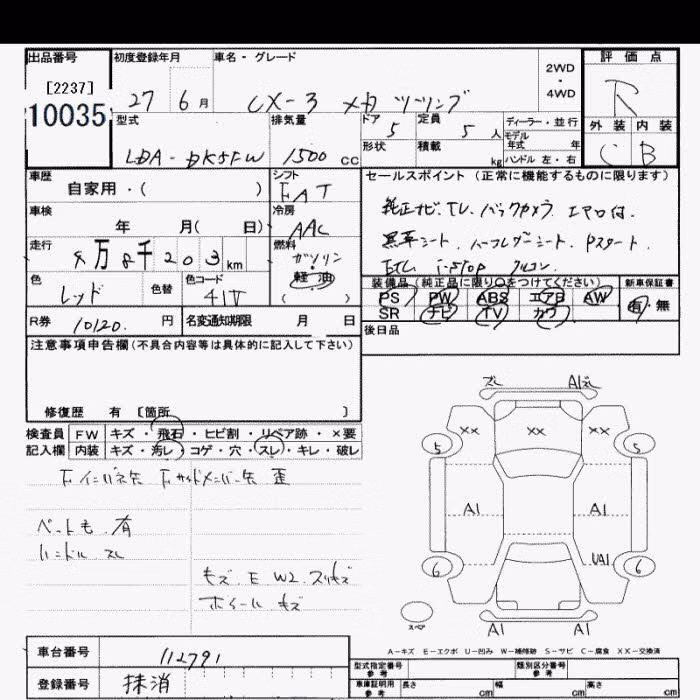 出品番号 初度登録年月 車名・グレード 2WD ・ 4WD 評価点
[2237]
10035 27 6月 CX-3 ツーリング R
型式 排気量 ドア 5 定員 5人 ディーラー・並行 外装 内装
LDA-DK5FW 1500cc 形状 積載 kg モデル年式 年 ハンドル 左・右 C B
車歴 シフト セールスポイント (正常に機能するものに限ります)
自家用・( ) FAT
車検 冷房 純正ナビ. TV. バックカメラ エアロ付.
年 月( 日) AAC
走行 燃料 黒革シート. ハーフレザーシート. Pスタート.
8万8千203km ガソリン ETC i-stop
色 色替 色コード 軽油 装備品(純正品に限り○をつけてください) 新車保証書
レッド 41V ( ) PS PW ABS エアB AW 有・無
R券 10120. 円 名変通知期限 月 日 SR ナビ TV カワ
注意事項申告欄(不具合内容等は具体的に記入して下さい) 後日品
修復歴 有 [箇所 ]
検査員 FW キズ・飛石・ヒビ割・リペア跡・×要
記入欄 内装 キズ・汚レ・コゲ・穴・スレ・キレ・破レ
ペット毛 有
ハンドル スレ
キズ. E W2. スリキズ
ホイール キズ
スレ A1スレ
XX XX XX
5 5
A1 A1
UA1
6 6
スペア
A1 A1
A-キズ E-エクボ U-凹み W-補修跡 S-サビ C-腐食 XX-交換済
車台番号 112791
登録番号 抹消
型式指定番号 参考 類別区分番号 参考
車庫証明用 参考 長さ cm 幅 cm 高さ cm